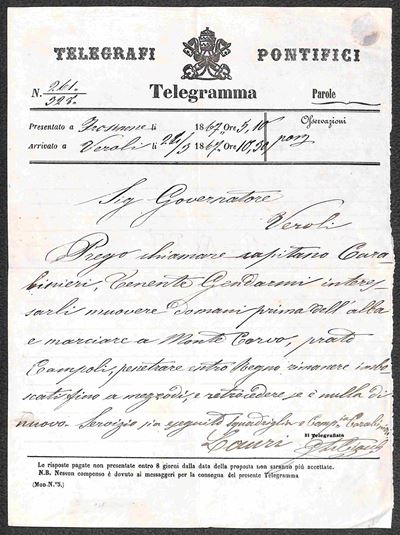 TELEGRAFI PONTIFICI
N. 261. Telegramma Parole
328.
Presentato a Frosinone li 1867. Ore 5, 10 Osservazioni
Arrivato a Veroli li 22/5 1867. Ore 10,50
Sig Governatore
Veroli
Prego chiamare capitano Cara-
binieri, Tenente Gendarmi interes-
sarli muovere domani prima dell'alba
e marciare a Monte Corvo, prato
Campoli, penetrare entro Regno rimanere imbo-
scati fino a mezzodì, e retrocedere se è nulla di
nuovo. Servizio sia eseguito Squadriglia e Comp.ia Carabinieri
Lauri Il Telegrafista
Le risposte pagate non presentate entro 8 giorni dalla data della proposta non saranno più accettate.
N.B. Nessun compenso è dovuto ai messaggeri per la consegna del presente Telegramma
(Mod N.°5.)